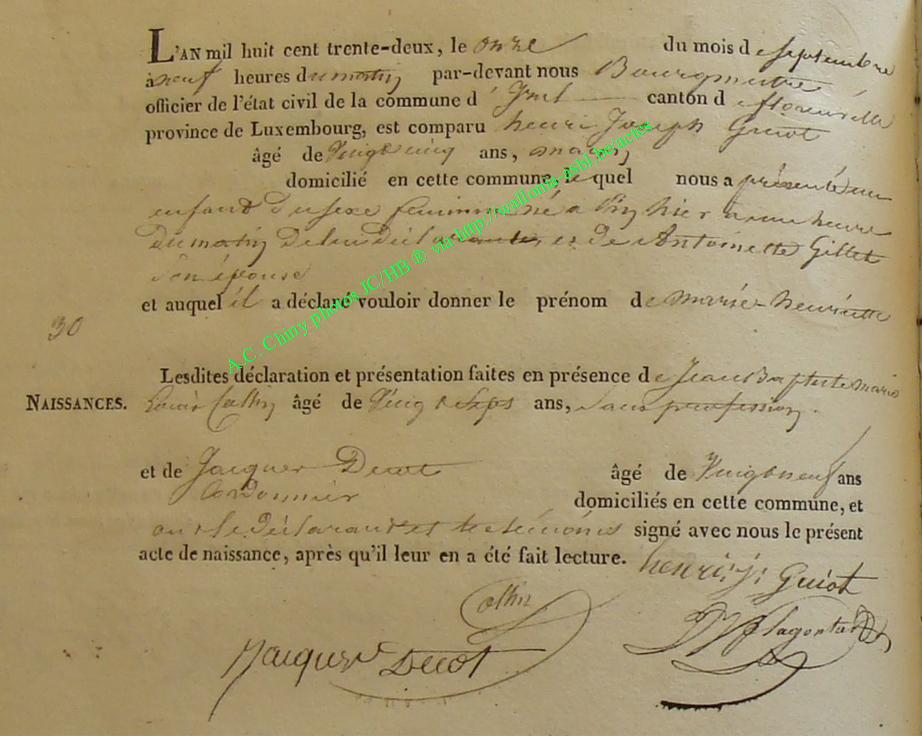 L'AN mil huit cent trente-deux, le onze du mois de septembre
à neuf heures du matin par-devant nous Bourgmestre
officier de l'état civil de la commune d' canton de florenville
province de Luxembourg, est comparu henri Joseph Guiot
âgé de vingt cinq ans, maçon
domicilié en cette commune, le quel nous a présenté un
enfant du sexe feminin né a hier a une heure
du matin de lui déclarant et de Antoinette Gillet
son épouse
et auquel il a déclaré vouloir donner le prénom de marie-henriette
30
Lesdites déclaration et présentation faites en présence de Jean Baptiste marie
NAISSANCES.
Louis Collin âgé de vingt sept ans, sans profession.
et de Jacques Decot âgé de vingt neuf ans
Cordonnier domiciliés en cette commune, et
ont le déclarant et les témoins signé avec nous le présent
acte de naissance, après qu'il leur en a été fait lecture.
henri. j. Guiot
Collin
Jacques Decot
A.C. Chiny photos JC/HB ® via http://wallonia-asbl.be/actes